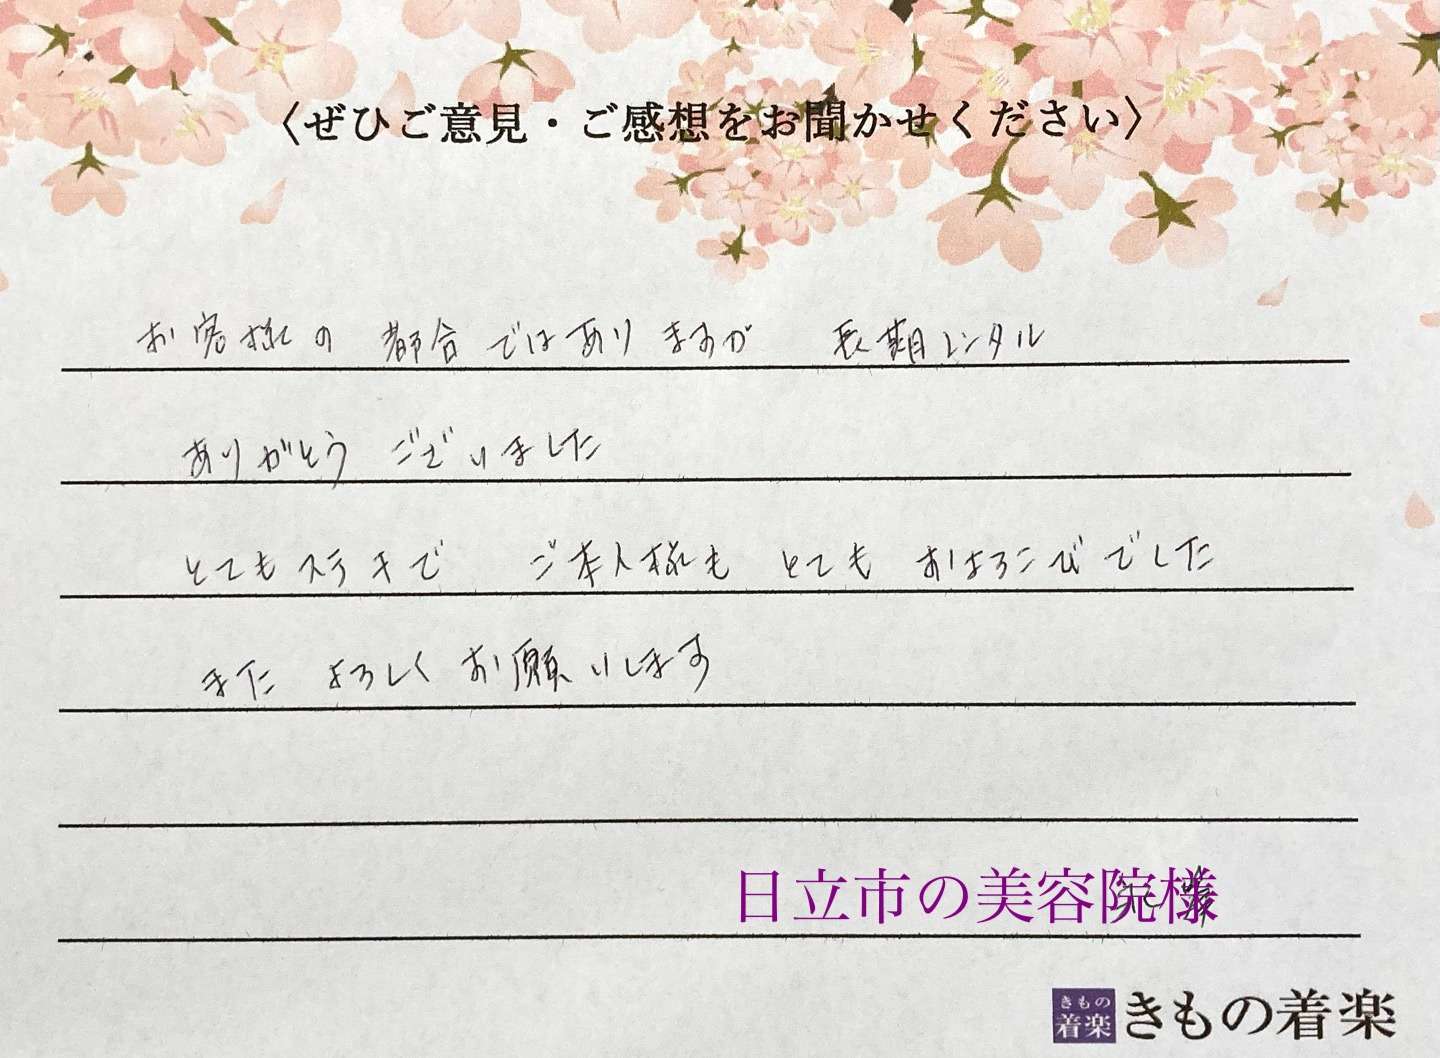 〈ぜひご意見・ご感想をお聞かせください〉
お客様の 都合ではありますが 長期レンタル
ありがとう ございました
とてもステキで ご本人様も とても およろこびでした
また よろしく お願いします
日立市の美容院様
きもの
着楽
きもの着楽